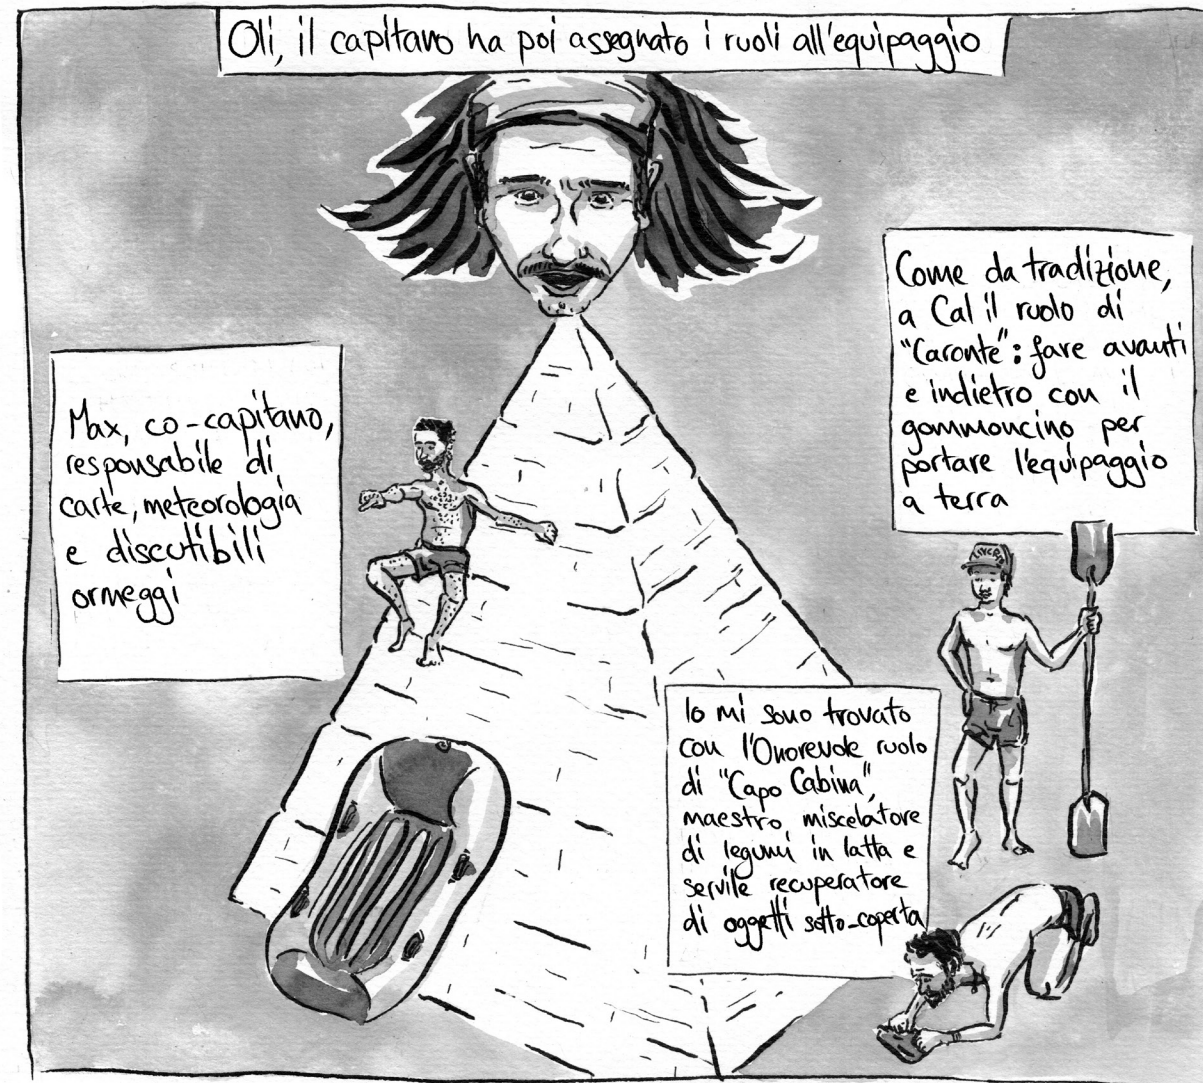 Oli, il capitano ha poi assegnato i ruoli all'equipaggio
Max, co-capitano,
responsabile di
carte, meteorologia
e discutibili
ormeggi
Come da tradizione,
a Cal il ruolo di
"Caronte": fare avanti
e indietro con il
gommoncino per
portare l'equipaggio
a terra
Io mi sono trovato
con l'Onorevole ruolo
di "Capo Cabina",
maestro miscelatore
di legumi in latta e
servile recuperatore
di oggetti sotto-coperta